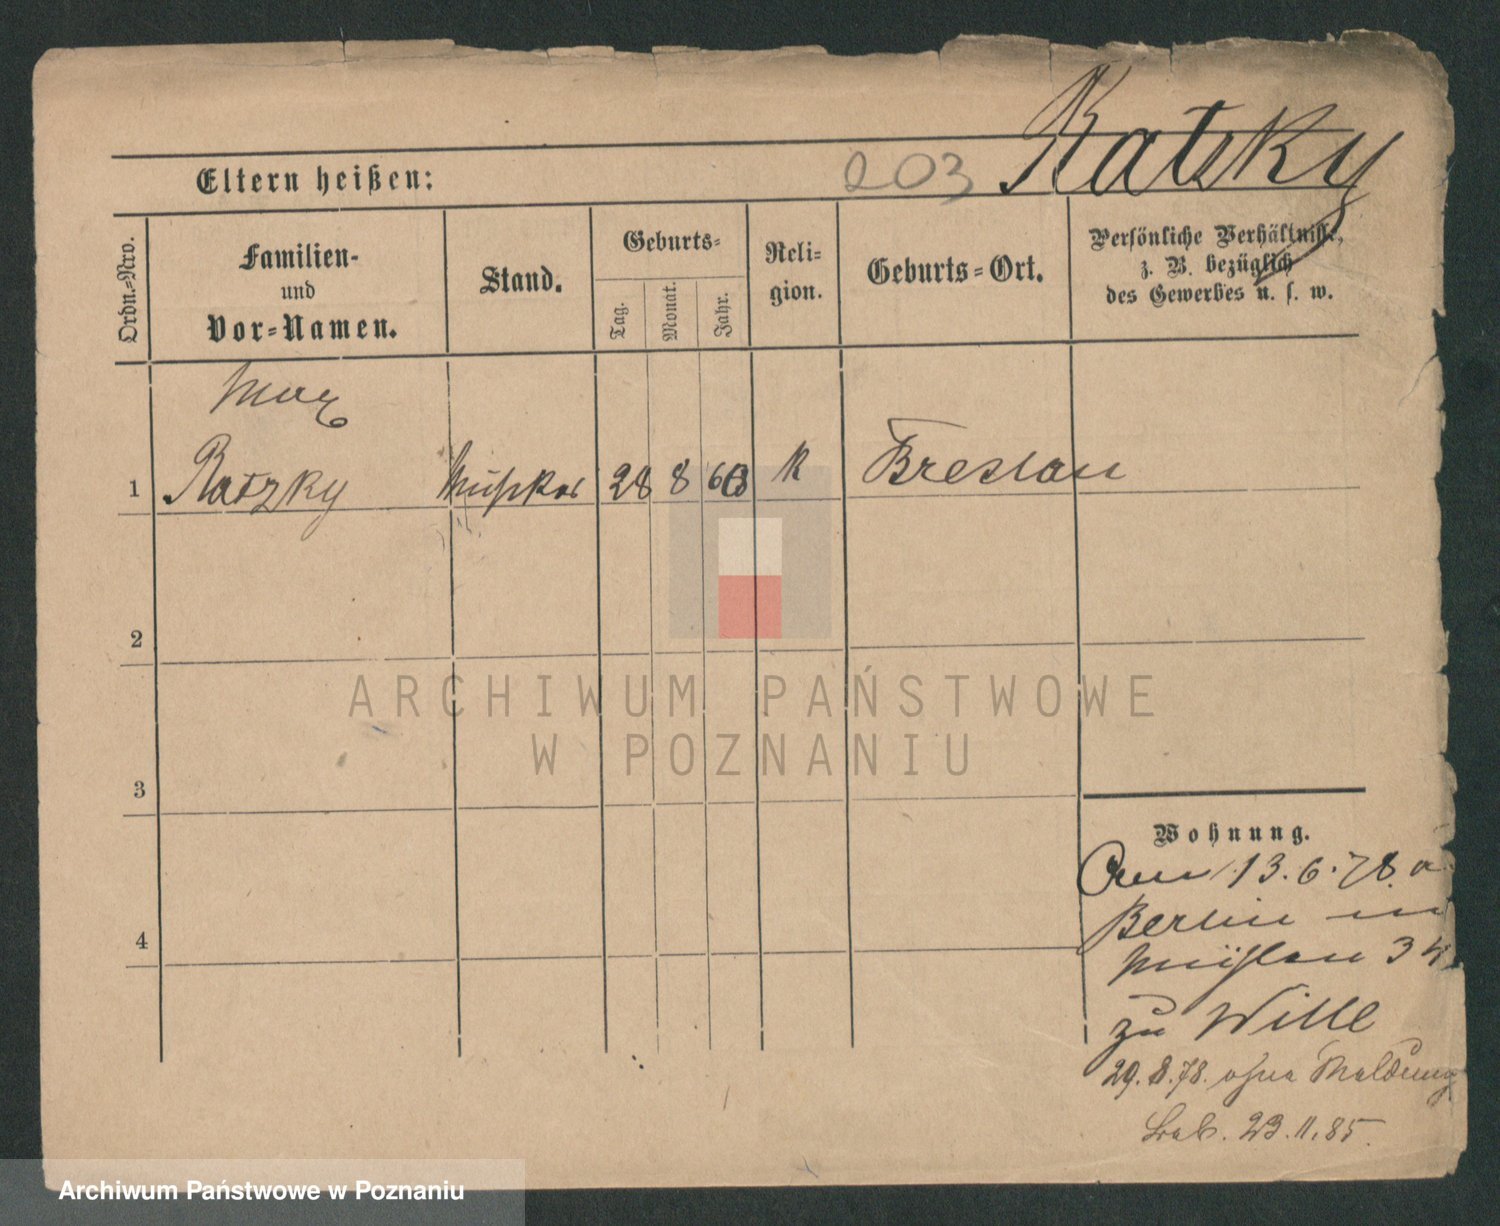 203 Ratzky
Eltern heißen:
Ordn.-Nro.
Familien-
und
Vor-Namen.
Stand.
Geburts-
Tag.
Monat.
Jahr.
Reli-
gion.
Geburts-Ort.
Persönliche Verhältnisse,
z. B. bezüglich
des Gewerbes u. s. w.
Max
1 Ratzky 28 8 K Breslau
2
ARCHIWUM PAŃSTWOWE
W POZNANIU
3
Wohnung.
13.6.78.
Berlin
4
zu Wille
29.8.78. ohne Meldung
23.11.85.
Archiwum Państwowe w Poznaniu